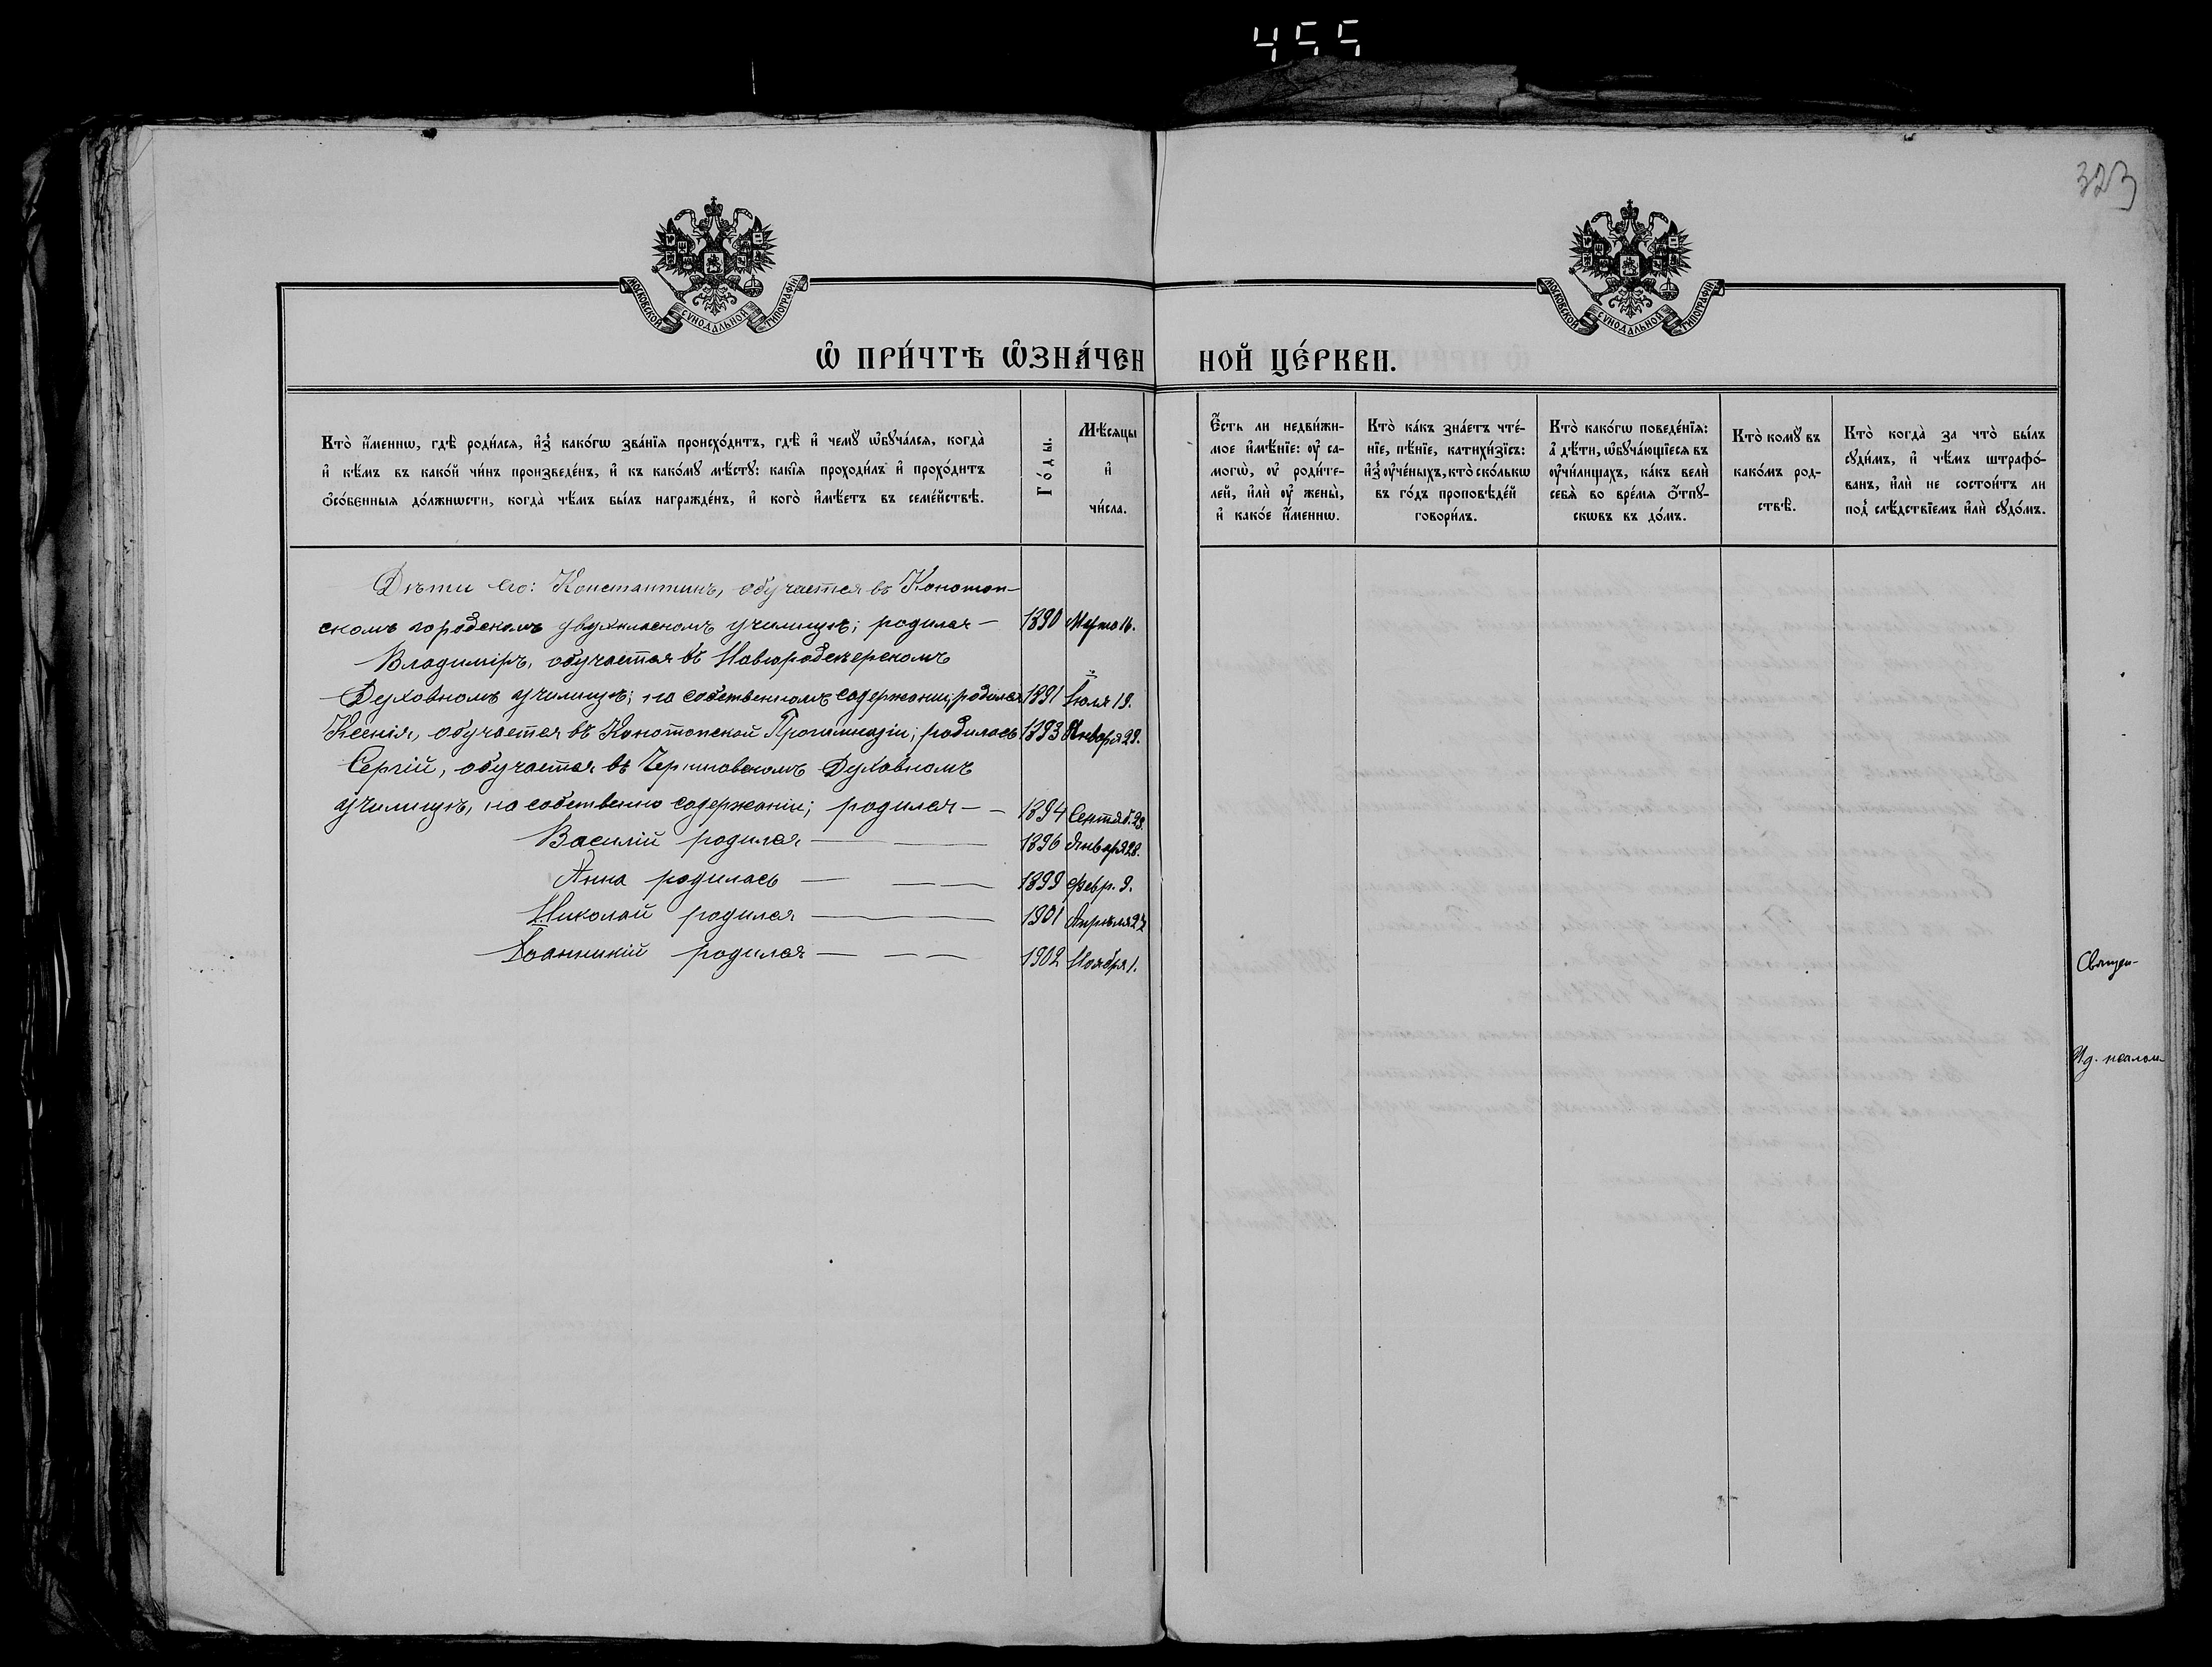 455
323
МОСКОВСКОЙ СѴНОДАЛЬНОЙ ТИПОГРАФІИ
МОСКОВСКОЙ СѴНОДАЛЬНОЙ ТИПОГРАФІИ
Ѡ҆ ПРИ́ЧТѢ Ѡ҆ЗНА́ЧЕН НОЙ ЦЕ́РКВИ.
Кто̀ и҆́меннѡ, гдѣ̀ роди́лсѧ, и҆з̾ какѡ́гѡ зва́нїѧ происхо́дитъ, гдѣ̀ и҆ чемꙋ̀ ѡ҆бꙋча́лсѧ, когда̀
и҆ кѣ́мъ въ како́й чи́нъ произведе́нъ, и҆ къ како́мꙋ мѣ́стꙋ: какі̑ѧ проходи́лъ и҆ прохо́дитъ
ѻ҆со́бенныѧ до́лжнѡсти, когда̀ чѣ́мъ бы́лъ награжде́нъ, и҆ кого̀ и҆мѣ́етъ въ семе́йствѣ.
Го́ды.
Мѣ́сѧцы
и҆
чи́сла.
Е҆́сть ли недви́жи-
мое и҆мѣ́нїе: оу҆ са-
могѡ̀, оу҆ роди́те-
лей, и҆лѝ оу҆ жены̀,
и҆ како́е и҆́меннѡ.
Кто̀ ка́къ зна́етъ чте́-
нїе, пѣ́нїе, катихи́зїсъ:
и҆з̾ оу҆че́ныхъ, кто̀ ско́лькѡ
въ го́дъ проповѣ́дей
говори́лъ.
Кто̀ како́гѡ поведе́нїѧ:
а҆ дѣ́ти, ѡ҆бꙋча́ющїесѧ въ
оу҆чи́лищахъ, ка́къ велѝ
себѧ̀ во вре́мѧ ѻ҆́тпꙋ-
скѡвъ въ до́мъ.
Кто̀ комꙋ̀ въ
како́мъ род-
ствѣ̀.
Кто̀ когда̀ за что̀ бы́лъ
сꙋди́мъ, и҆ чѣ́мъ штрафо́-
ванъ, и҆лѝ не состои́тъ ли
под̾ слѣ́дствїемъ и҆лѝ сꙋдо́мъ.
Дѣти его: Константинъ, обучается въ Конотоп-
скомъ городскомъ двухкласномъ училищѣ; родился — 1890 Марта 16.
Владиміръ, обучается въ Новгородсѣверскомъ
Духовномъ училищѣ; на собственномъ содержаніи; родился 1891 Іюля 19.
Ксенія, обучается въ Конотопской Прогимназіи; родилась 1893 Января 29.
Сергій, обучается въ Черниговскомъ Духовномъ
училищѣ, на собственно содержаніи; родился — — 1894 Сентяб. 29.
Василій родился — — — 1896 Января 28.
Анна родилась — — — 1899 Февр. 9.
Николай родился — — — 1901 Апрѣля 22
Іоанникій родился — — — 1902 Ноября 1.
Священ-
И. д. псалом-